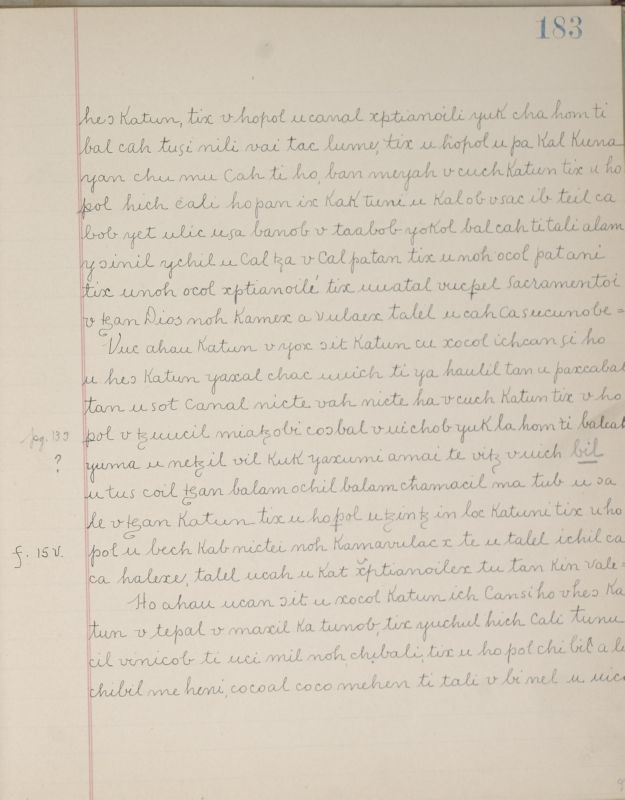 183
heɔ Katun, tix v hopol u canal xptianoili yuk cha hom ti
bal cah tuçi nili vai tac lume, tix u hopol u pa Kal Kuna
yan chu mu Cah ti ho, ban meyah v cuch Katun tix u ho
pol hich cali hopan ix Kak tuni u Kalob v sac ib teil ca
bob yet ulic uça banob v taabob yokol bal cah ti tali alam
y ɔinil ychil u Cal ꜩa v Cal patan tix u noh ocol patani
tix u noh ocol xptianoilé tix uuatal vucpel Sacramentoi
v ꜩan Dios noh Kamex a vulaex talel u cah Ca sucunobe =
Vuc ahau Katun v yox ɔit Katun cu xocol ichcan çi ho
u heɔ Katun yaxal chac uuich ti ya haulil tan u paxcabal
tan u sot Canal nicte vah nicte ha v cuch Katun tix v ho
pg. 133 pol v ꜩuucil miaꜩobi coɔbal v uichob yuk la hom ti balcah
? yuma u neꜩil vil Kuk yaxumi amai te viꜩ v uich bil
u tus coil ꜩan balam ochil balam chamacil ma tub u ɔa
le v ꜩan Katun tix u hopol u ꜩinꜩ in loc Katuni tix u ho
f. 15 v. pol u bech Kab nictei noh Kamavulac x te u talel ichil ca
ca halexe, talel ucah u Kat xptianoilex tu tan Kin vale =
Ho ahau ucan ɔit u xocol Katun ich Cansiho v heɔ Ka
tun v tepal v maxil Ka tunob, tix yuchul hich Cali tunu
cil vinicob ti uci mil noh chibali, tix u ho pol chi bil a le
chibil me heni, cocoal coco mehen ti tali v bi nel u uic